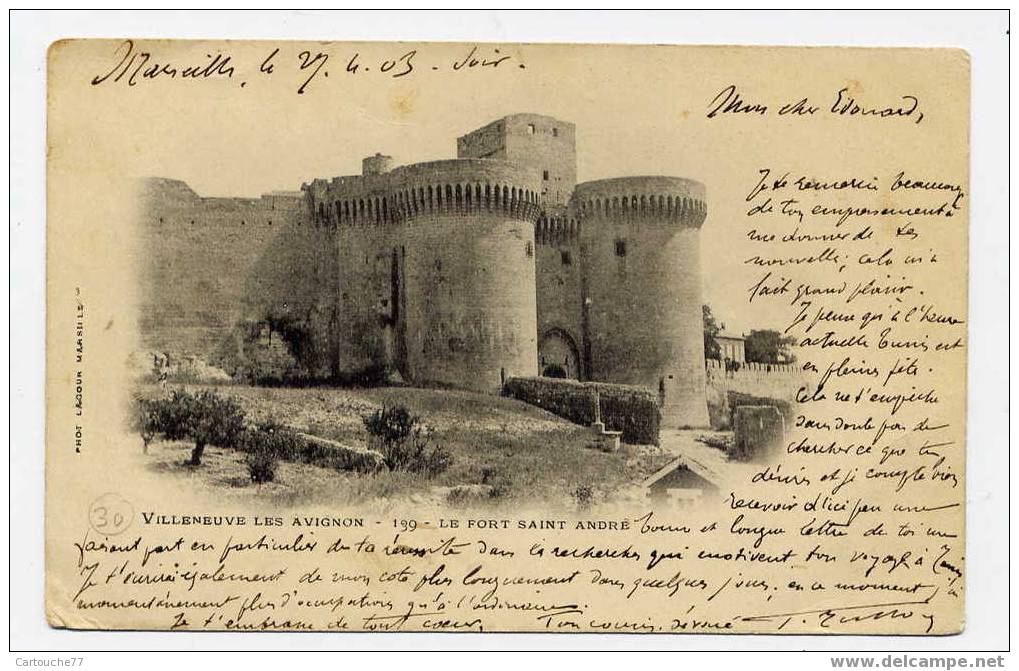 Marseille, le 27.4.03 - Soir.
Mon cher Edouard,
Je te remercie beaucoup
de ton empressement à
me donner de tes
nouvelles ; cela m'a
fait grand plaisir.
Je pense qu'à l'heure
actuelle Tunis est
en pleine fête.
Cela ne t'empêche
sans doute pas de
chercher ce que tu
désires et je compte bien
recevoir d'ici peu une
bonne et longue lettre de toi me
faisant part en particulier de ta réussite dans les recherches qui motivent ton voyage à Tunis
Je t'écrirai également de mon côté plus longuement dans quelques jours, en ce moment j'ai
momentanément plus d'occupations qu'à l'ordinaire
Je t'embrasse de tout coeur, Ton cousin dévoué
PHOT LACOUR MARSEILLE
30
VILLENEUVE LES AVIGNON - 199 - LE FORT SAINT ANDRÉ
Cartouche77
www.delcampe.net